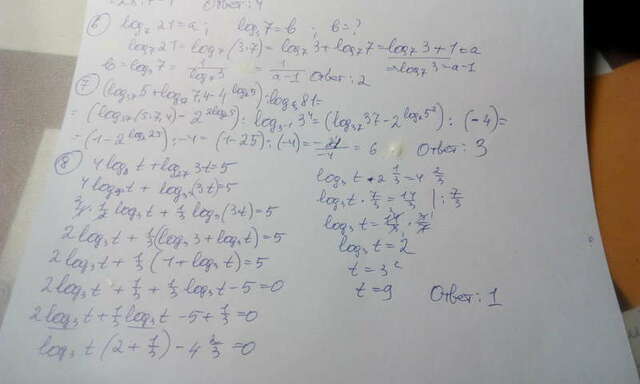 Ответ: 4
6) log₇ 21 = a; log₃ 7 = b; b = ?
log₇ 21 = log₇ (3·7) = log₇ 3 + log₇ 7 = log₇ 3 + 1 = a
b = log₃ 7 = 1/log₇ 3 = 1/(a-1) Ответ: 2 ⇒ log₇ 3 = a-1
7) (log₃₇ 5 + log₃₇ 7,4 - 4^(log₂ 5)) : log 81 =
= (log₃₇ (5·7,4) - 2^(2log₂ 5)) : log₃₋₁ 3⁴ = (log₃₇ 37 - 2^(log₂ 5²)) : (-4) =
= (1 - 2^(log₂ 25)) : -4 = (1-25) : (-4) = -24/-4 = 6 Ответ: 3
8) 4 log₉ t + log₂₇ 3t = 5
4 log t + log (3t) = 5
· 1/2 log₃ t + 1/3 log₃ (3t) = 5
2 log₃ t + 1/3 (log₃ 3 + log₃ t) = 5
2 log₃ t + 1/3 (1 + log₃ t) = 5
2 log₃ t + 1/3 + 1/3 log₃ t - 5 = 0
2 log₃ t + 1/3 log₃ t - 5 + 1/3 = 0
log₃ t (2 + 1/3) - 4 2/3 = 0
log₃ t · 2 1/3 = 4 2/3
log₃ t · 7/3 = 14/3 | : 7/3
log₃ t = 14/3 · 3/7
log₃ t = 2
t = 3²
t = 9 Ответ: 1